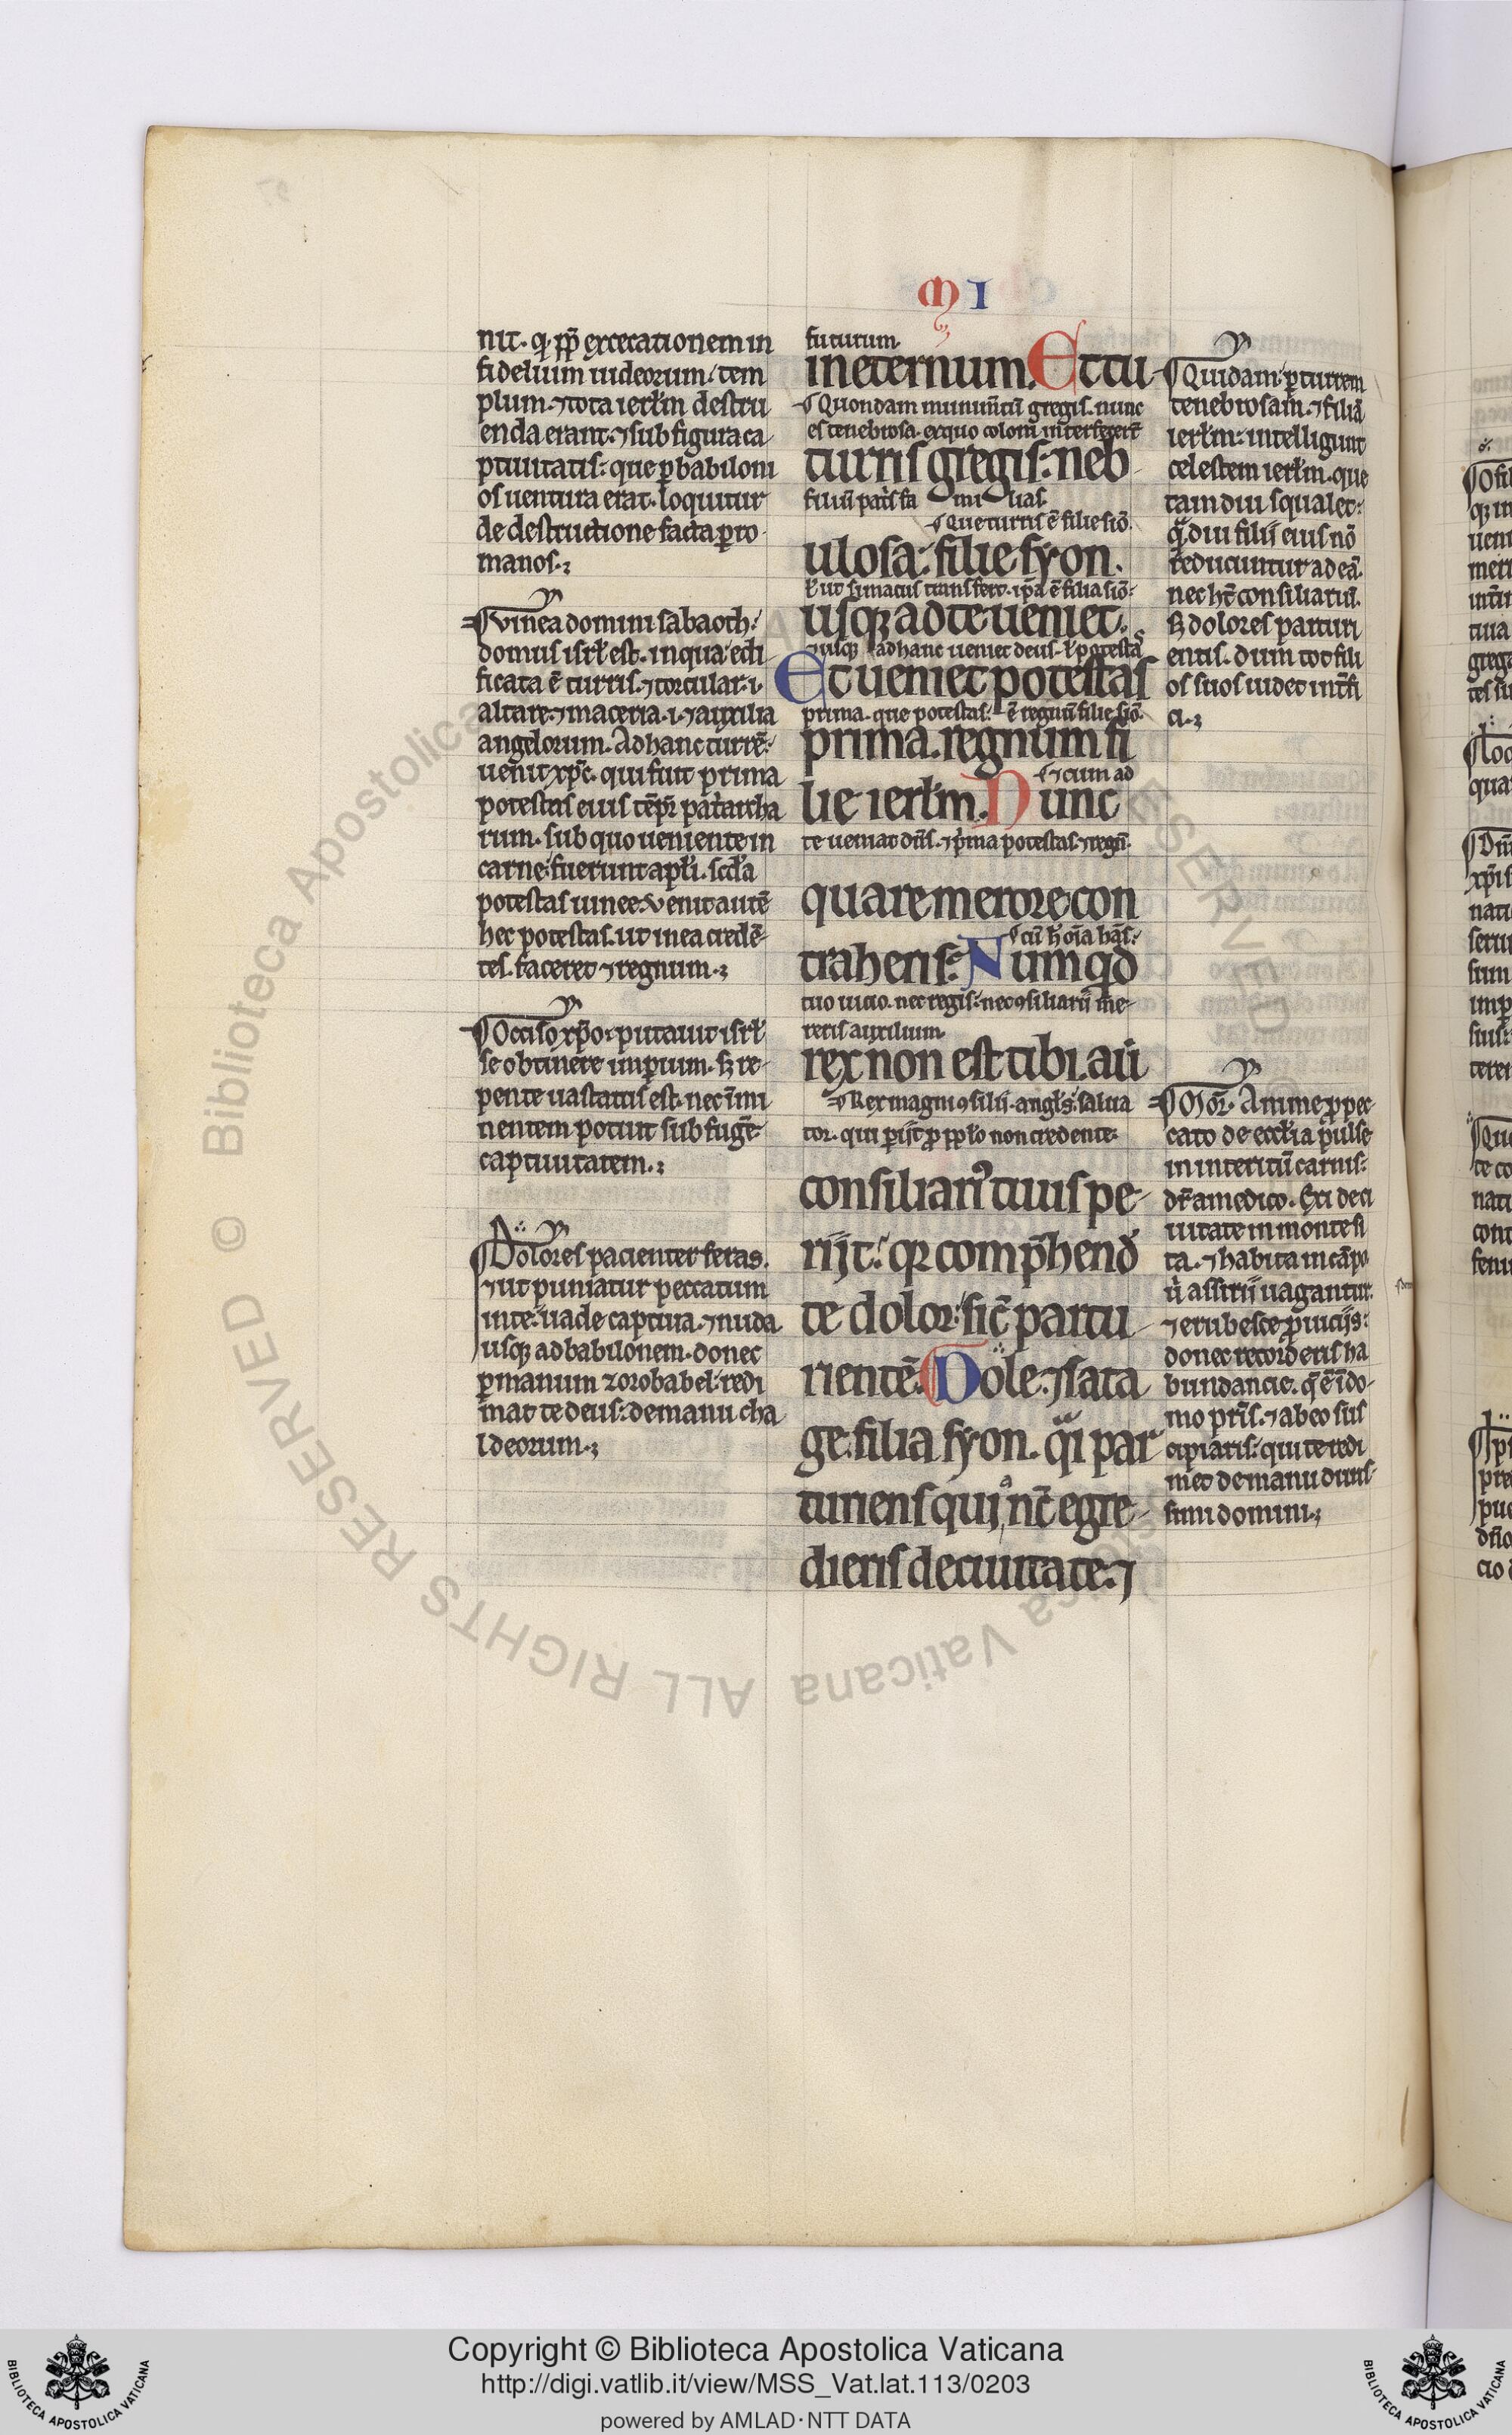 M I
nit. q. ꝓp̄ excecationem in
fidelium iudeorum. tem
plum. ⁊ tota ierl̄m destru
enda erant. ⁊ sub figura ca
ptiuitatis. que ꝑ babiloni
os uentura erat. loquitur
de destructione facta ꝑ ro
manos.
Vinea domini sabaoth.
domus isrl̄ est. in qua edi
ficata ē turris. ⁊ torcular .i.
altare. ⁊ maceria .i. ⁊ auxilia
angelorum. Ad hanc turrē.
uenit xp̄c. qui fuit prima
potestas eius tēpr̄ patriarcha
rum. sub quo ueniente in
carne. fuerunt apl̄i. scd̄a
potestas uinee. venit autē
hec potestas. ut in ea credē
tes. faceret ⁊ regnum.
Occiso xp̄o. putauit isrl̄
se obtinere imꝑium. sꝫ re
pente uastatus est. nec īmi
nentem potuit subfugē
captiuitatem.
Dolores pacienter feras.
⁊ ut puniatur peccatum
in te. uade captiua. ⁊ nuda
usqꝫ ad babilonem. donec
ꝑ manum zorobabel. redi
mat te deus. de manu cha
ldeorum.
futurum.
in eternum. Et tu
Quondam munim̄tū gregis. nunc
es tenebrosa. ex quo coloni interfecert̄
turris gregis. neb
filiū patris fa mi lias.
Que turris ē filie siō.
ulosa. filie syon.
l̄ ut simacus transfert. ip̄a ē filia siō.
usqꝫ ad te ueniet.
⁊ usqꝫ ad hanc ueniet deus. l̄ potestas
Et ueniet potestas
prima. que potestas. ē regnū filie siō.
prima. regnum fi
⁊ cum ad
lie ierl̄m. Nunc
te ueniat dn̄s. ⁊ prima potestas. ⁊ regn̄.
quare merore con
cū h̄ oīa hās.
traheris. Numqd
tuo uicio. nec regis. nec ꝯsiliarii me
reris auxilium.
rex non est tibi. aū
Rex magni ꝯsilii. angl̄s. salua
tor. qui ꝑijt ꝓ ppl̄o non credente.
consiliarꝰ tuus pe
rijt. qr comp̄hend
te dolor. sic̄ partu
rientē. Dole. ⁊ sata
ge. filia syon. qi par
turiens. qui nc̄ egre
dieris de ciuitate. ⁊
Quidam. ꝑ turrem
tenebrosam. ⁊ filiā
ierl̄m. intelligunt
celestem ierl̄m. que
tam diu squalet.
qdiu filii eius nō
reducuntur ad eā.
nec ht̄ consiliarium.
sꝫ dolores parturi
entis. dum tot fili
os suos uidet int̄fi
ci.
Mor̄. Anime ꝓ pec
cato de eccl̄ia pulse
in interitū carnis.
dr̄ a medico. Exi de ci
uitate in monte si
ta. ⁊ habita in cāpo
u̇ assirii uagantur.
⁊ erubesce ꝓ uicijs.
donec recorderis ha
bundancie. q̄ ē ī do
mo pr̄is. ⁊ ab eo sus
cipiaris. qui te redi
met de manu duris
simi domini.
Copyright © Biblioteca Apostolica Vaticana
http://digi.vatlib.it/view/MSS_Vat.lat.113/0203
powered by AMLAD·NTT DATA
BIBLIOTECA APOSTOLICA VATICANA
BIBLIOTECA APOSTOLICA VATICANA
© Biblioteca Apostolica Vaticana ALL RIGHTS RESERVED